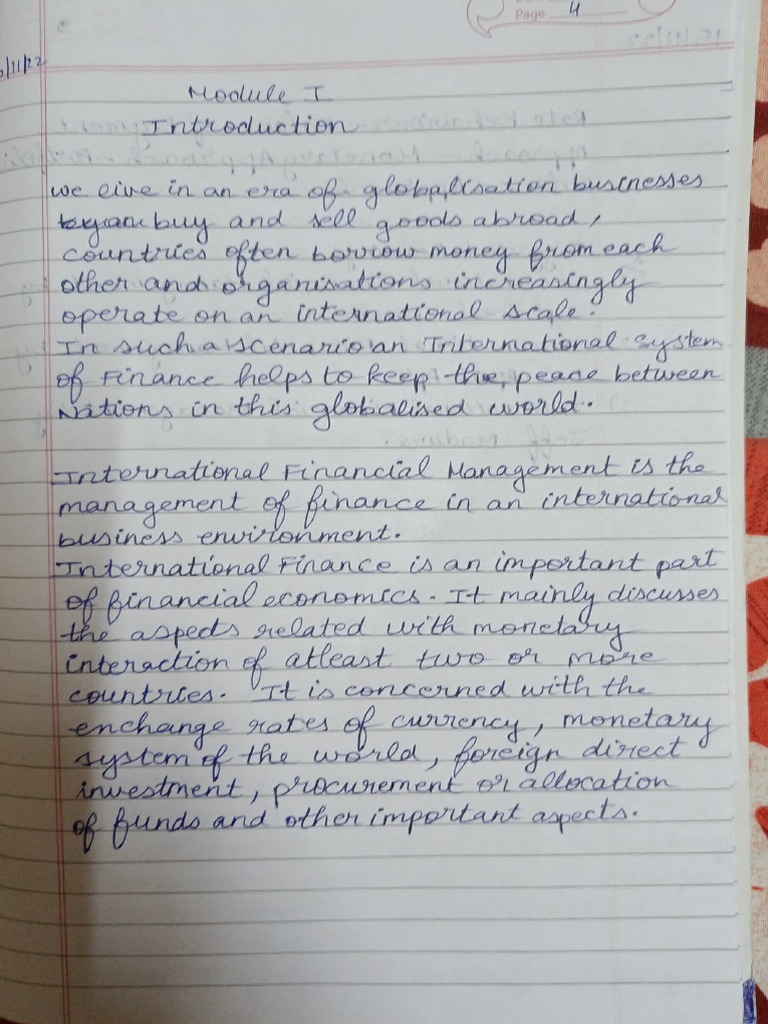 Page 4
Module I
Introduction
we live in an era of globalisation businesses
buy and sell goods abroad,
countries often borrow money from each
other and organisations increasingly
operate on an international scale.
In such a scenario an International system
of Finance helps to keep the peace between
Nations in this globalised world.
International Financial Management is the
management of finance in an international
business environment.
International Finance is an important part
of financial economics. It mainly discusses
the aspects related with monetary
interaction of atleast two or more
countries. It is concerned with the
enchange rates of currency, monetary
system of the world, foreign direct
investment, procurement or allocation
of funds and other important aspects.